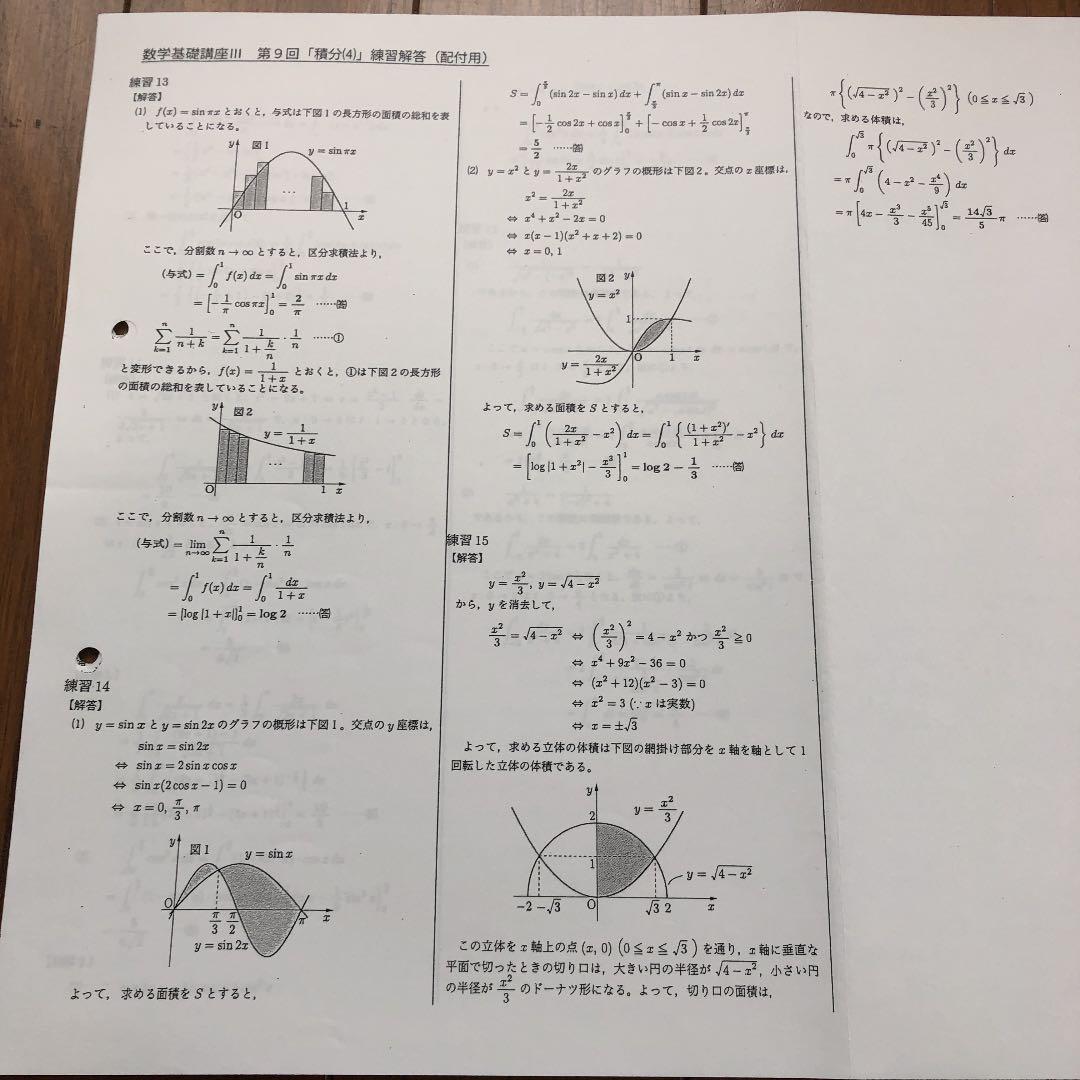 数学基礎講座III　第9回「積分(4)」練習解答（配付用）
練習13
【解答】
(1)　f(x)=sin πx とおくと，与式は下図1の長方形の面積の総和を表
していることになる。
y
図1
y=sin πx
…
O
1
x
ここで，分割数 n→∞ とすると，区分求積法より，
(与式)=∫₀¹ f(x)dx=∫₀¹ sin πx dx
=[-1/π cos πx]₀¹=2/π ……㊥答
∑_{k=1}^{n} 1/(n+k)=∑_{k=1}^{n} 1/(1+k/n)・1/n ……①
と変形できるから，f(x)=1/(1+x) とおくと，①は下図2の長方形
の面積の総和を表していることになる。
y
図2
y=1/(1+x)
…
O
1
x
ここで，分割数 n→∞ とすると，区分求積法より，
(与式)=lim_{n→∞} ∑_{k=1}^{n} 1/(1+k/n)・1/n
=∫₀¹ f(x)dx=∫₀¹ dx/(1+x)
=[log|1+x|]₀¹=log 2 ……答
練習14
【解答】
(1)　y=sin x と y=sin 2x のグラフの概形は下図1。交点の y 座標は，
sin x=sin 2x
⇔ sin x=2 sin x cos x
⇔ sin x(2 cos x-1)=0
⇔ x=0, π/3, π
y
図1
y=sin x
O
π/3
π/2
π
x
y=sin 2x
よって，求める面積を S とすると，
S=∫₀^{π/3}(sin 2x-sin x)dx+∫_{π/3}^{π}(sin x-sin 2x)dx
=[-1/2 cos 2x+cos x]₀^{π/3}+[-cos x+1/2 cos 2x]_{π/3}^{π}
=5/2 ……答
(2)　y=x² と y=2x/(1+x²) のグラフの概形は下図2。交点の x 座標は，
x²=2x/(1+x²)
⇔ x⁴+x²-2x=0
⇔ x(x-1)(x²+x+2)=0
⇔ x=0, 1
図2
y
y=x²
1
O
1
x
y=2x/(1+x²)
よって，求める面積を S とすると，
S=∫₀¹(2x/(1+x²)-x²)dx=∫₀¹{(1+x²)′/(1+x²)-x²}dx
=[log|1+x²|-x³/3]₀¹=log 2-1/3 ……答
練習15
【解答】
y=x²/3, y=√(4-x²)
から，y を消去して，
x²/3=√(4-x²) ⇔ (x²/3)²=4-x² かつ x²/3≧0
⇔ x⁴+9x²-36=0
⇔ (x²+12)(x²-3)=0
⇔ x²=3 (∵ x は実数)
⇔ x=±√3
よって，求める立体の体積は下図の網掛け部分を x 軸を軸として1
回転した立体の体積である。
y
y=x²/3
2
1
y=√(4-x²)
-2
-√3
O
√3
2
x
この立体を x 軸上の点 (x, 0) (0≦x≦√3) を通り，x 軸に垂直な
平面で切ったときの切り口は，大きい円の半径が √(4-x²)，小さい円
の半径が x²/3 のドーナツ形になる。よって，切り口の面積は，
π{(√(4-x²))²-(x²/3)²} (0≦x≦√3)
なので，求める体積は，
∫₀^{√3} π{(√(4-x²))²-(x²/3)²}dx
=π∫₀^{√3}(4-x²-x⁴/9)dx
=π[4x-x³/3-x⁵/45]₀^{√3}=14√3/5 π ……答